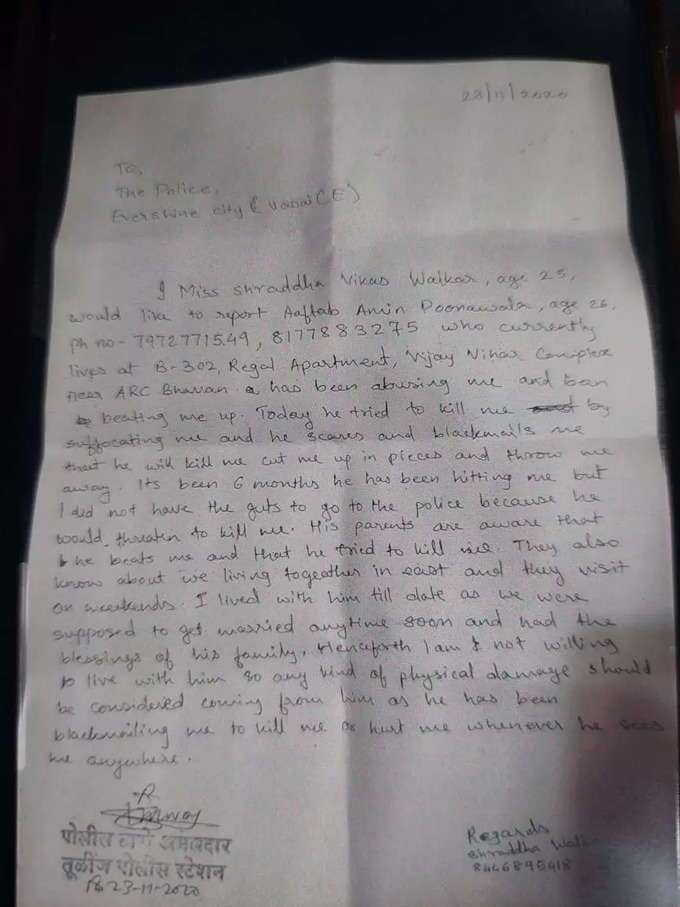 23/11/2020
To,
The Police,
Evershine city (Vasai (E)
I Miss Shraddha Vikas Walkar, age 25,
would like to report Aaftab Amin Poonawala, age 26,
ph no- 7972771549, 8177883275 who currently
lives at B-302, Regal Apartment, Vijay Vihar Complex
near ARC Bhavan has been abusing me and ben
beating me up. Today he tried to kill me by
suffocating me and he scares and blackmails me
that he will kill me cut me up in pieces and throw me
away. Its been 6 months he has been hitting me but
I did not have the guts to go to the police because he
would threaten to kill me. His parents are aware that
he beats me and that he tried to kill me. They also
know about we living togeather in east and they visit
on weekends. I lived with him till date as we were
supposed to get married anytime soon and had the
blessings of his family. Henceforth I am not willing
to live with him so any kind of physical damage should
be considered coming from him as he has been
blackmailing me to kill me or hurt me whenever he sees
me anywhere.
पोलीस ठाणे अंमलदार
तूळींज पोलीस स्टेशन
23-11-2020
Regards
Shraddha Walkar
8446895418